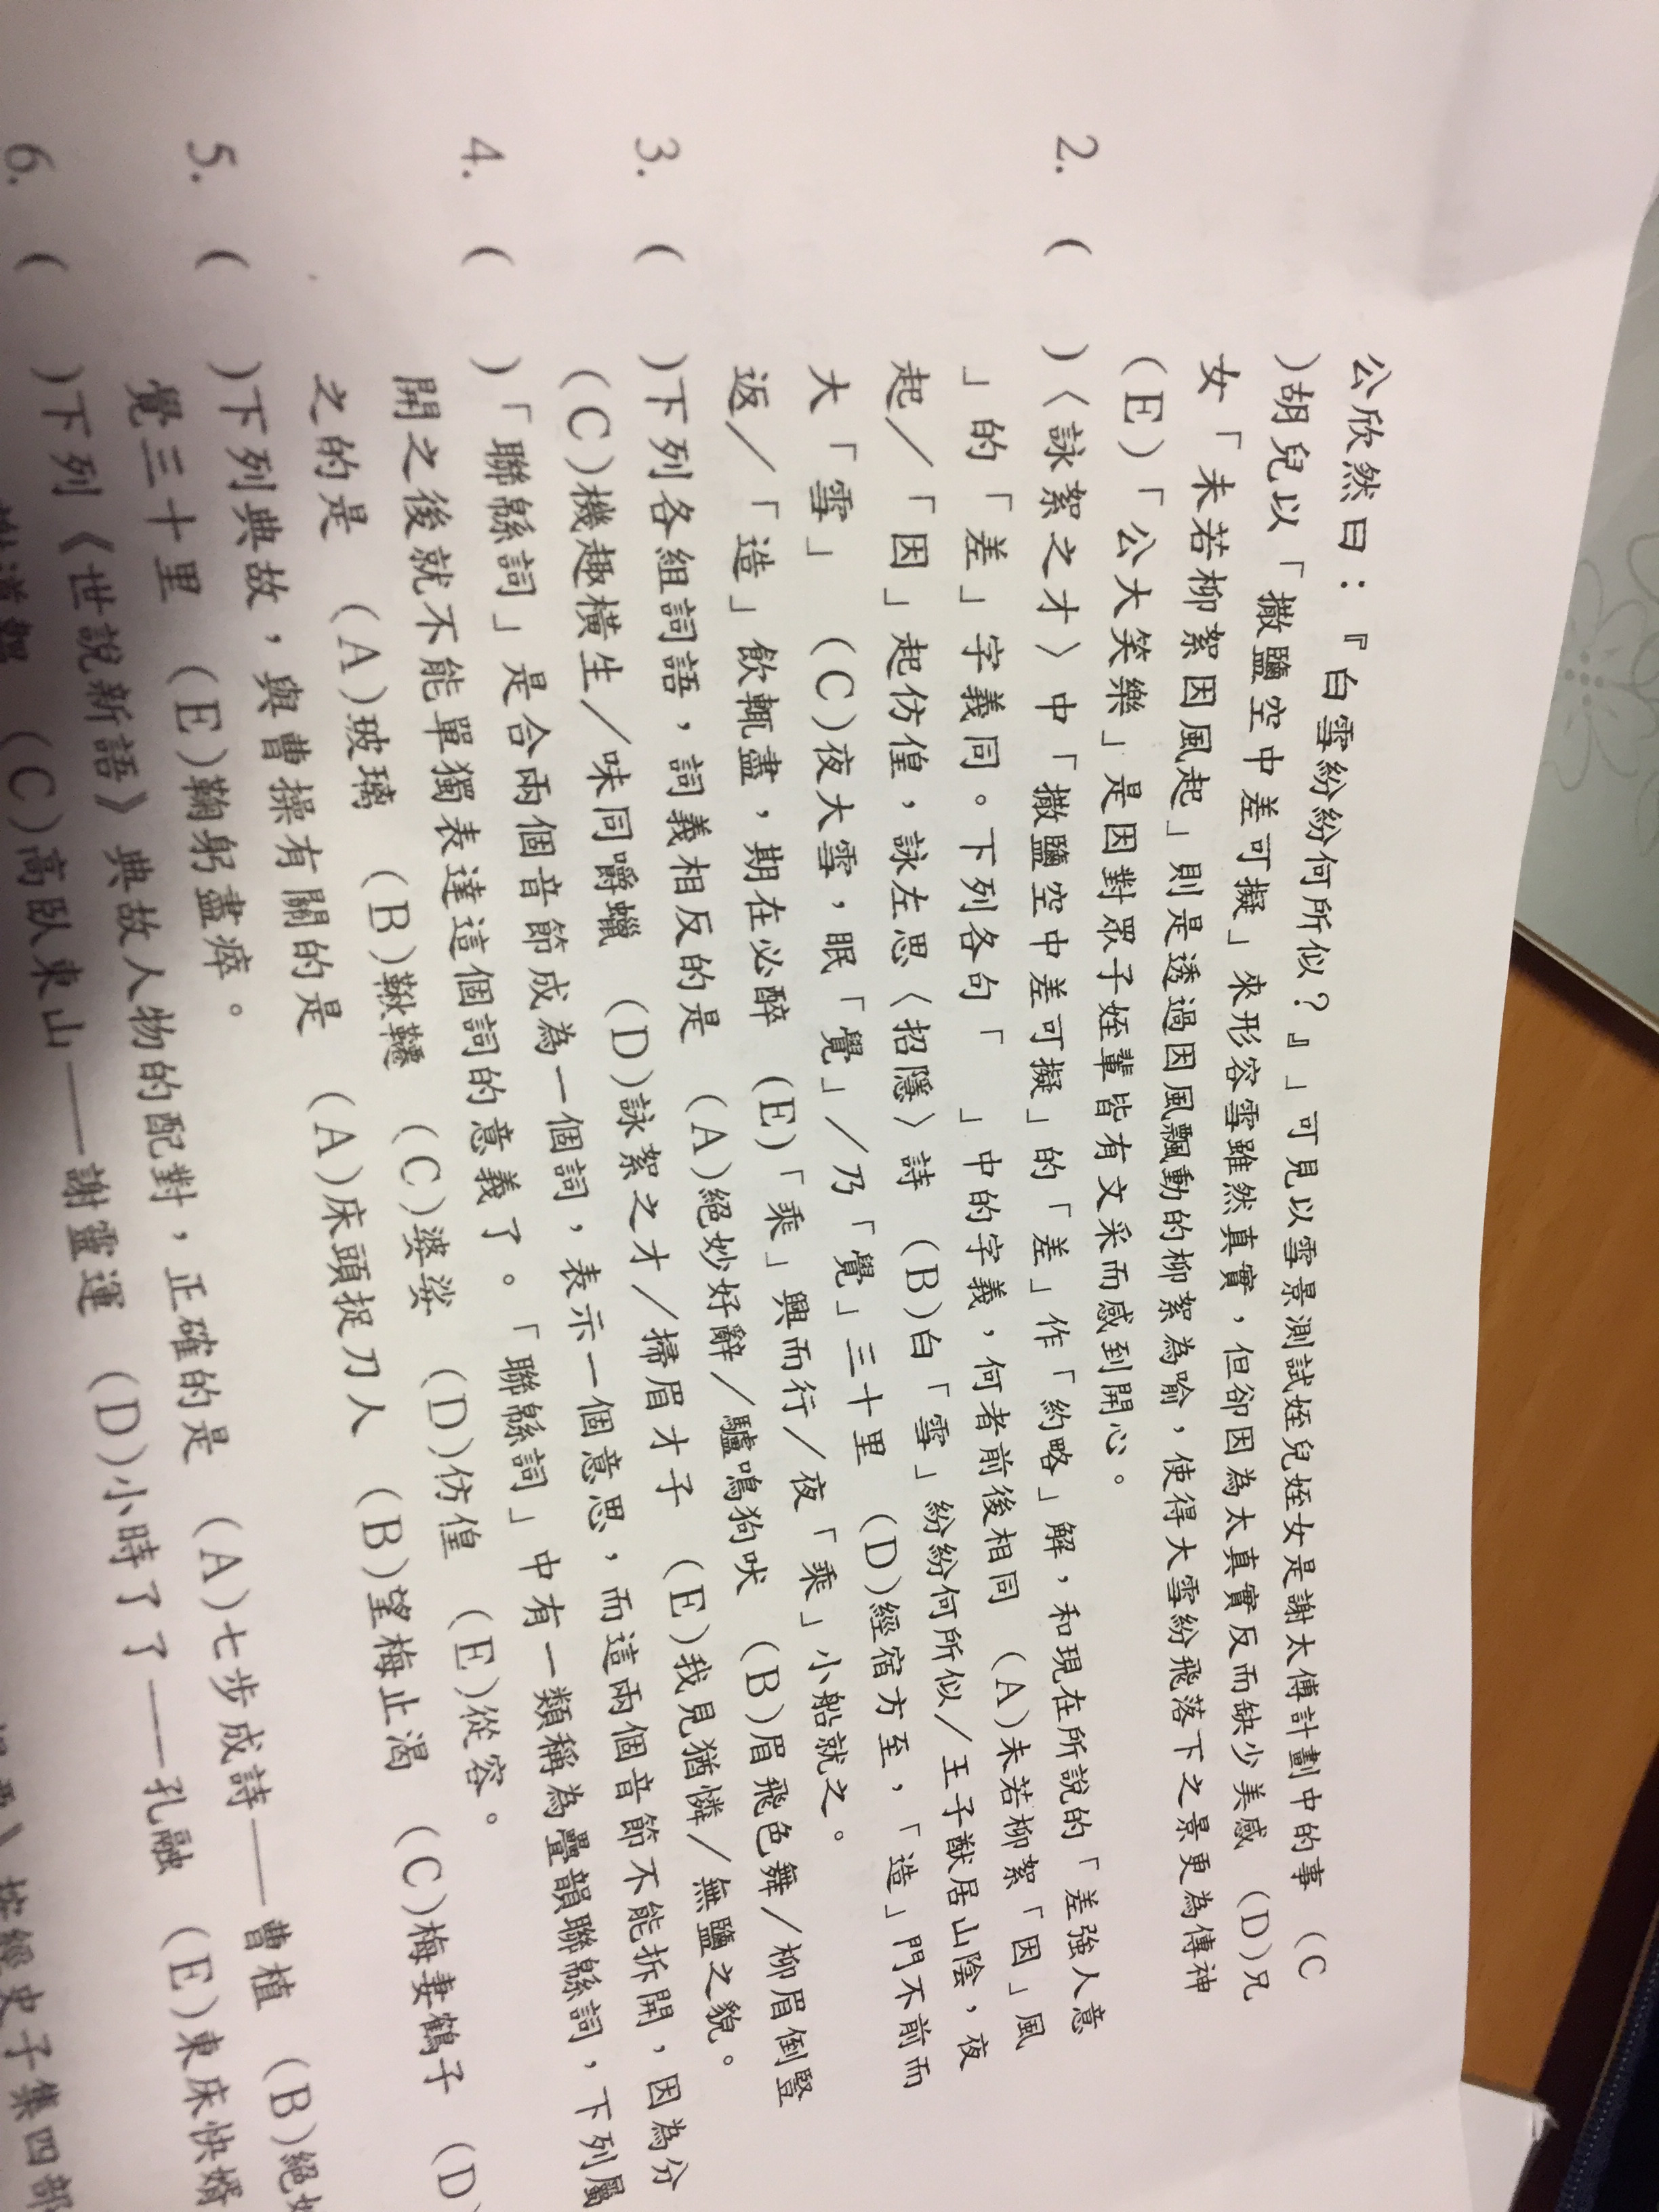 公欣然曰：『白雪紛紛何所似？』」可見以雪景測試姪兒姪女是謝太傅計劃中的事　(C
)胡兒以「撒鹽空中差可擬」來形容雪雖然真實，但卻因為太真實反而缺少美感　(D)兄
女「未若柳絮因風起」則是透過因風飄動的柳絮為喻，使得大雪紛飛落下之景更為傳神
(E)「公大笑樂」是因對眾子姪輩皆有文采而感到開心。
2. (　)〈詠絮之才〉中「撒鹽空中差可擬」的「差」作「約略」解，和現在所說的「差強人意
」的「差」字義同。下列各句「　」中的字義，何者前後相同　(A)未若柳絮「因」風
起／「因」起仿偟，詠左思〈招隱〉詩　(B)白「雪」紛紛何所似／王子猷居山陰，夜
大「雪」　(C)夜大雪，眠「覺」／乃「覺」三十里　(D)經宿方至，「造」門不前而
返／「造」飲輒盡，期在必醉　(E)「乘」興而行／夜「乘」小船就之。
3. (　)下列各組詞語，詞義相反的是　(A)絕妙好辭／驢鳴狗吠　(B)眉飛色舞／柳眉倒豎
(C)機趣橫生／味同嚼蠟　(D)詠絮之才／掃眉才子　(E)我見猶憐／無鹽之貌。
4. (　)「聯緜詞」是合兩個音節成為一個詞，表示一個意思，而這兩個音節不能拆開，因為分
開之後就不能單獨表達這個詞的意義了。「聯緜詞」中有一類稱為疊韻聯緜詞，下列屬
之的是　(A)玻璃　(B)鞦韆　(C)婆娑　(D)仿偟　(E)從容。
5. (　)下列典故，與曹操有關的是　(A)床頭捉刀人　(B)望梅止渴　(C)梅妻鶴子　(D)
覺三十里　(E)鞠躬盡瘁。
6. (　)下列《世說新語》典故人物的配對，正確的是　(A)七步成詩——曹植　(B)絕
(C)高臥東山——謝靈運　(D)小時了了——孔融　(E)東床快婿
經史子集四部